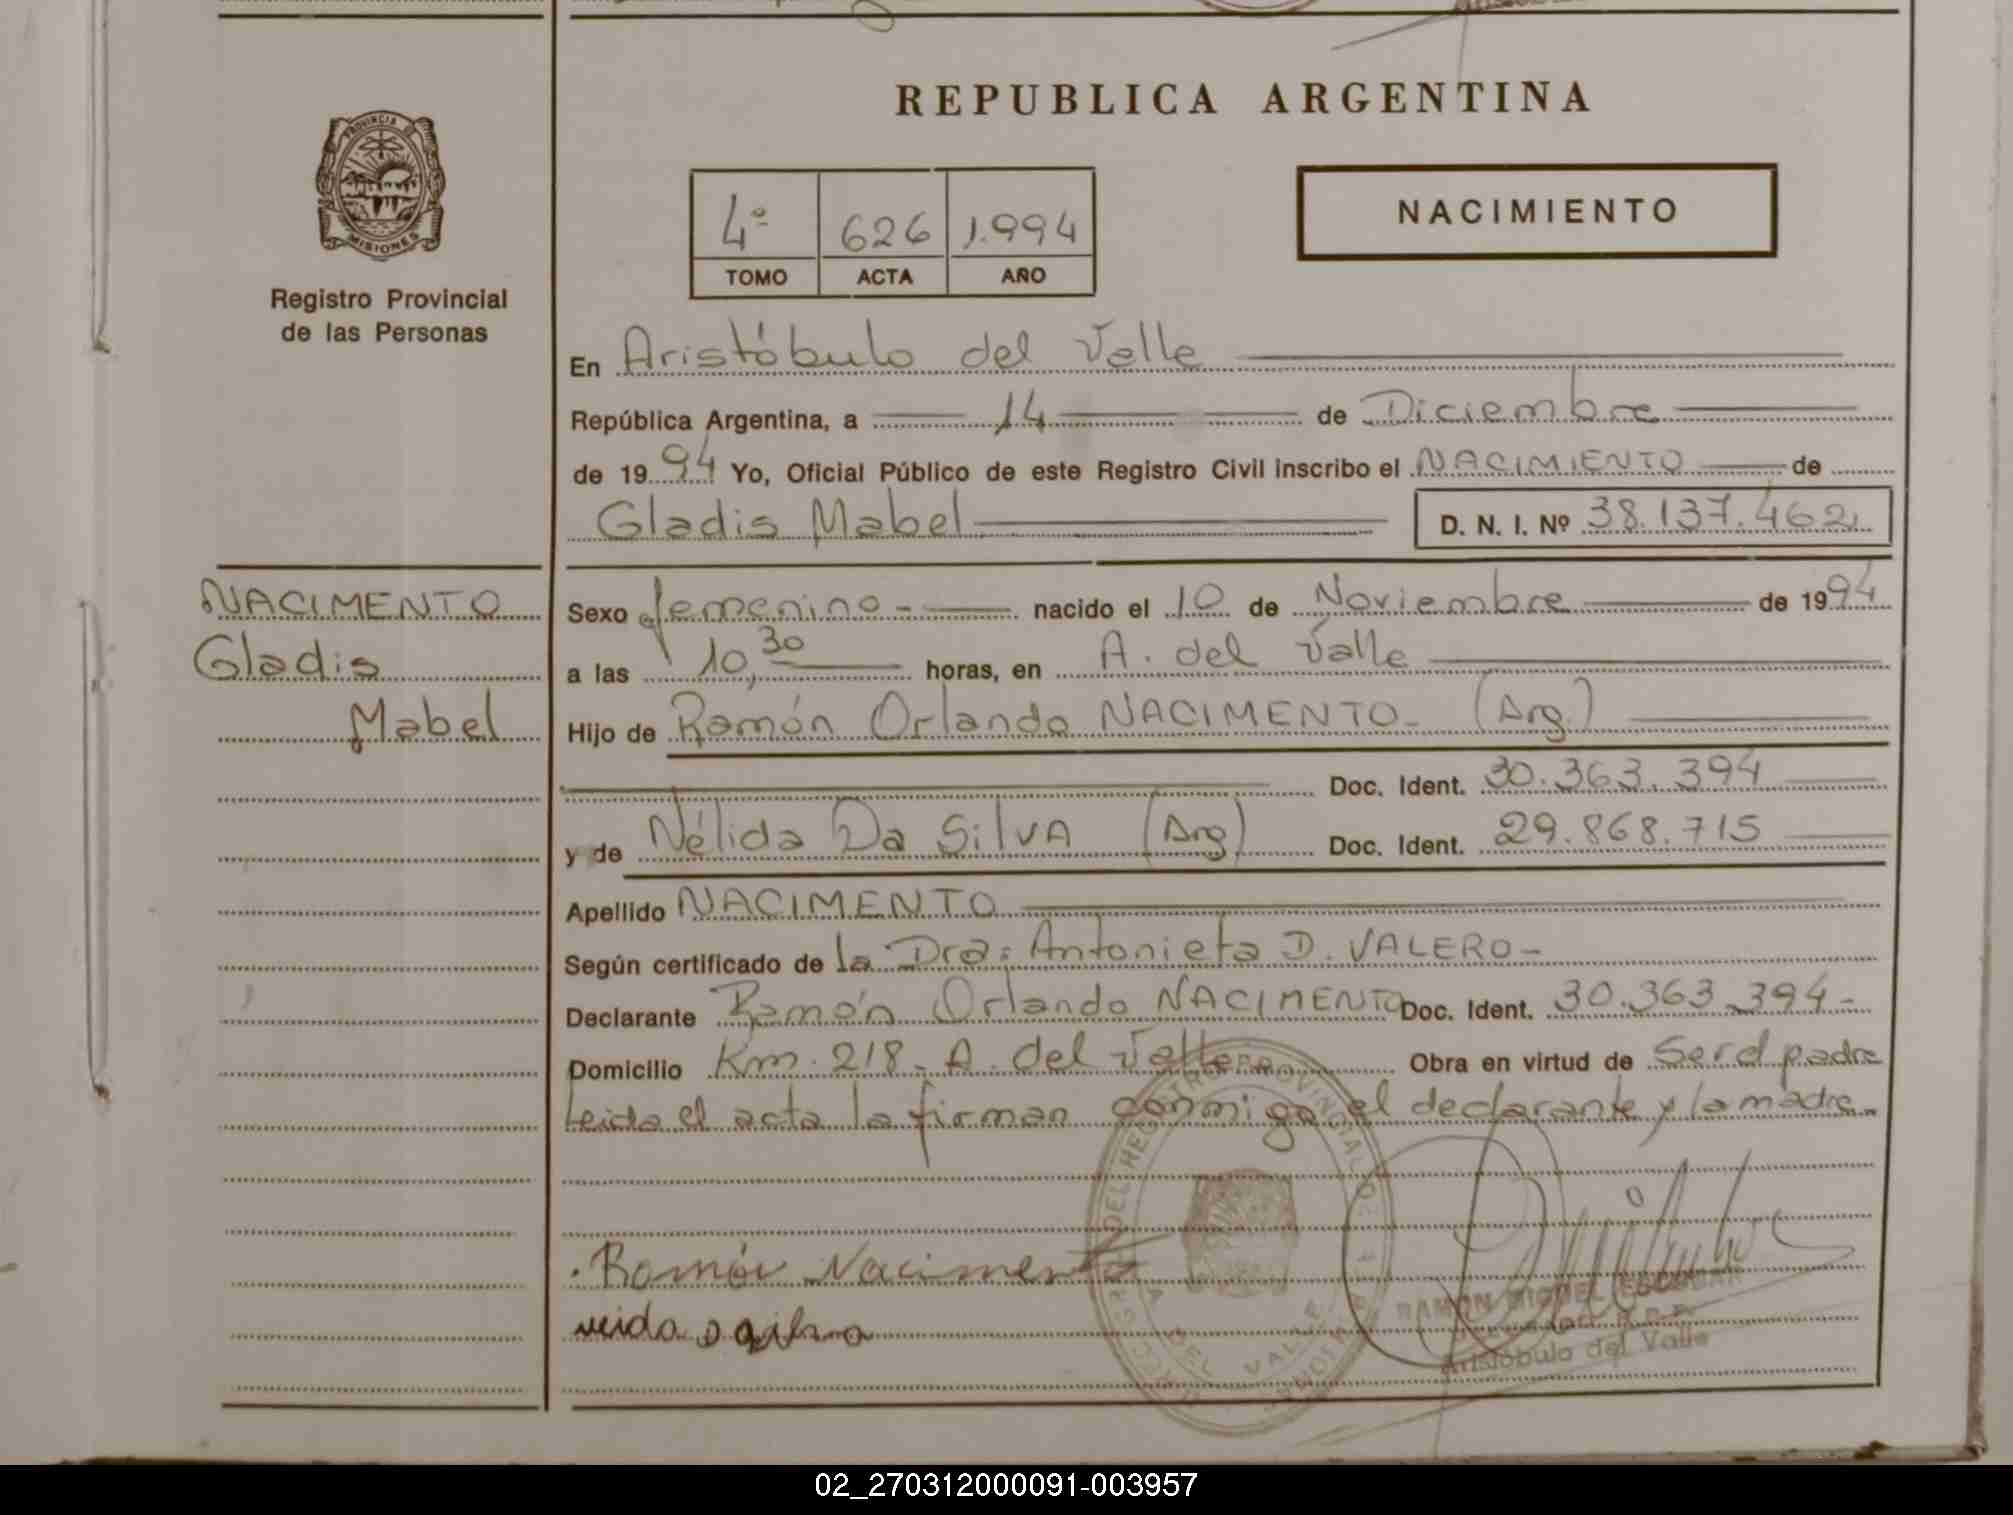 REPUBLICA ARGENTINA
PROVINCIA DE
MISIONES
Registro Provincial
de las Personas
4º 626 1.994
TOMO ACTA AÑO
NACIMIENTO
En Aristóbulo del Valle
República Argentina, a 14 de Diciembre
de 1994 Yo, Oficial Público de este Registro Civil inscribo el NACIMIENTO de
Gladis Mabel D. N. I. Nº 38.137.462
NACIMENTO
Gladis
Mabel
Sexo femenino- nacido el 10 de Noviembre de 1994
a las 10,30 horas, en A. del Valle
Hijo de Ramón Orlando NACIMENTO- (Arg.)
Doc. Ident. 30.363.394
y de Nélida Da SilVA (Arg) Doc. Ident. 29.868.715
Apellido NACIMENTO
Según certificado de la Dra: Antonieta D. VALERO-
Declarante Ramón Orlando NACIMENTO Doc. Ident. 30.363.394-
Domicilio Km. 218- A. del Valle Obra en virtud de Ser el padre
Leida el acta la firman conmigo el declarante y la madre.
Ramón Nacimento
RAMON MIGUEL ESCOBAR
Aristóbulo del Valle
DEL REGISTRO PROVINCIAL DE
A. DEL VALLE
02_270312000091-003957